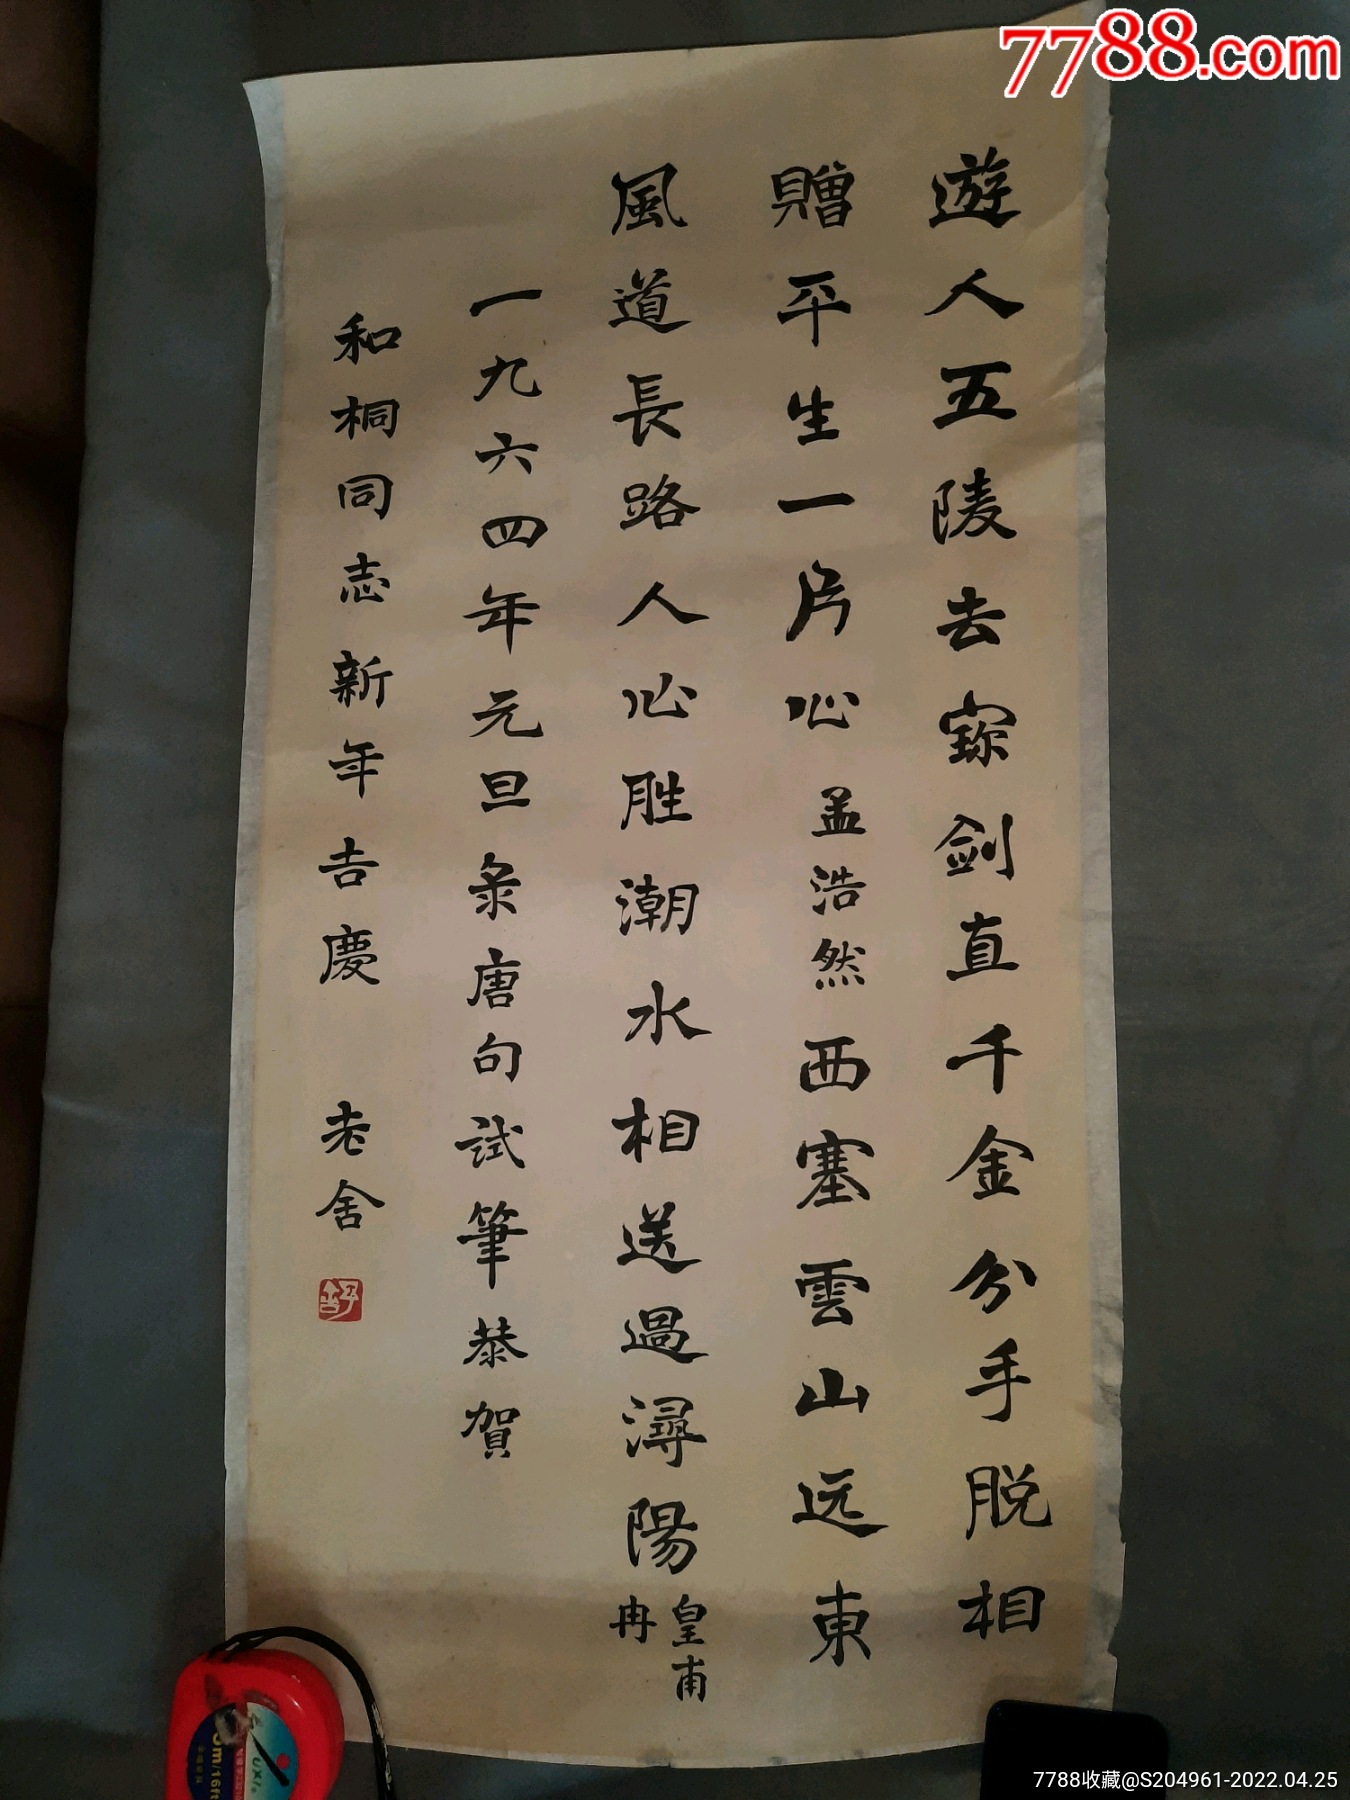 7788.com
遊人五陵去寳剑直千金分手脱相
贈平生一片心孟浩然西塞雲山远東
風道長路人心胜潮水相送過潯陽皇甫冉
一九六四年元旦录唐句試筆恭賀
和桐同志新年吉慶 老舍
舒
7788收藏@S204961-2022.04.25